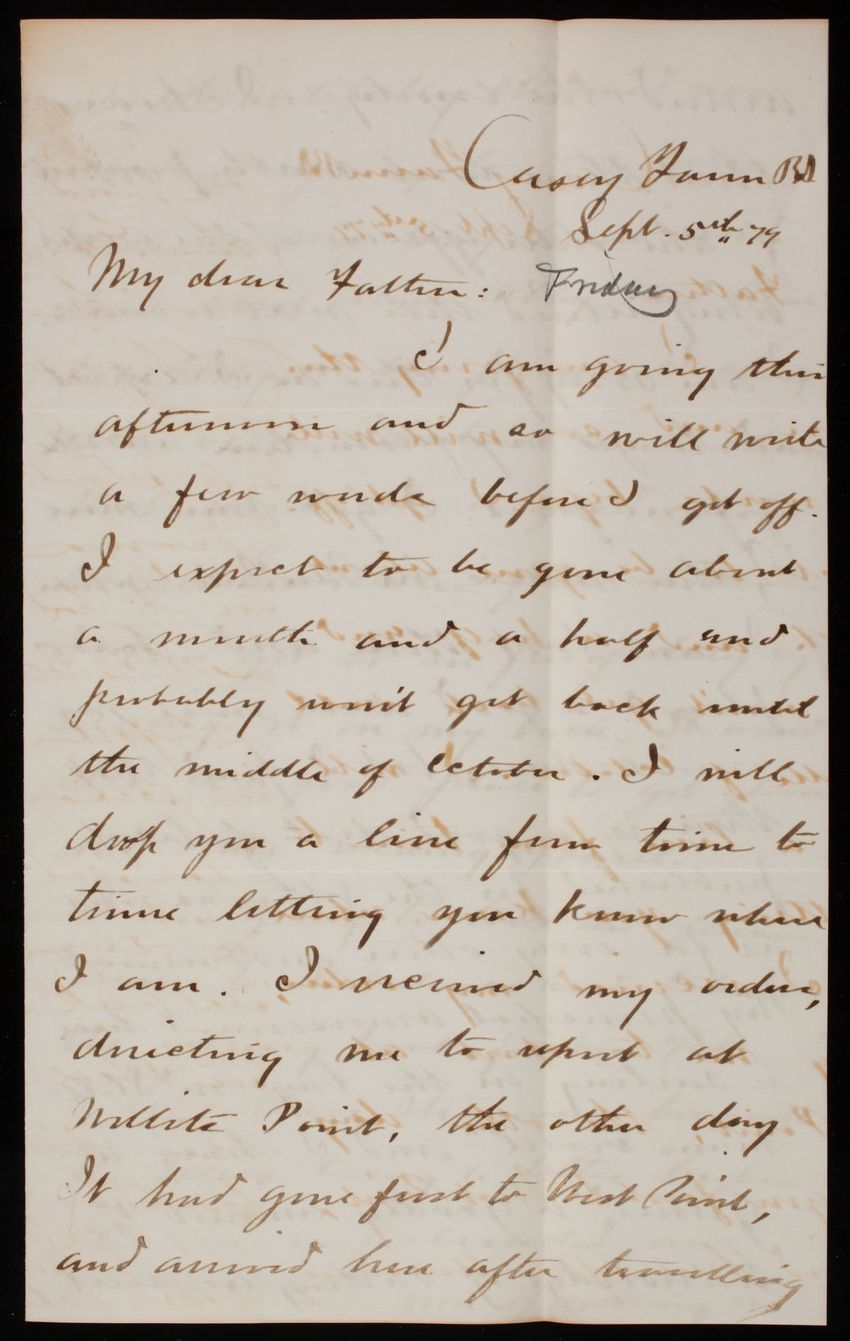 Casey Farm RI
Sept. 5th 79
My dear Father: Friday
I am going this
afternoon and so will write
a few words before I get off.
I expect to be gone about
a month and a half and
probably won't get back until
the middle of October. I will
drop you a line from time to
time letting you know where
I am. I received my orders,
directing me to report at
Willets Point, the other day
It had gone first to West Point,
and arrived here after travelling